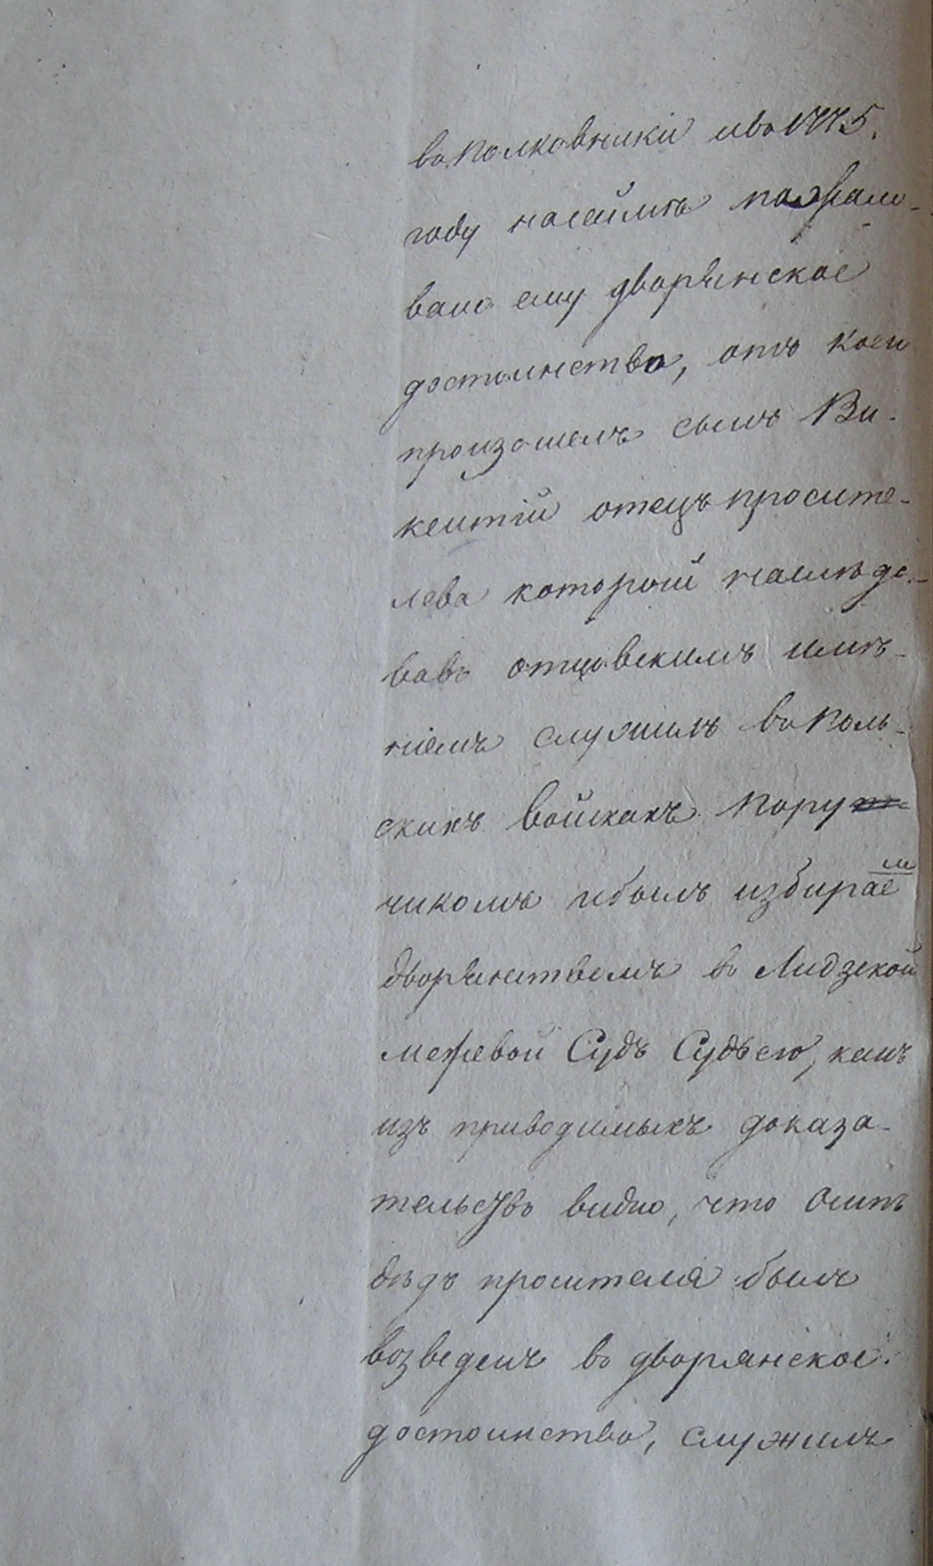 въ полковники и въ 1775.
году на сеймѣ пожало-
вано ему дворянское
достоинство, отъ коего
произошелъ сынъ Ви-
кентiй отецъ просите-
лева который наслѣдо-
вавъ отцовскимъ имѣ-
нiемъ служилъ въ поль-
скихъ войскахъ пору
чикомъ и былъ избираем
дворянствомъ въ Лидзской
межевой Судъ Судьею,
изъ приводимыхъ доказа-
тельствъ видно, что Осипъ
дѣдъ просителя былъ
возведенъ въ дворянское
достоинство, служилъ